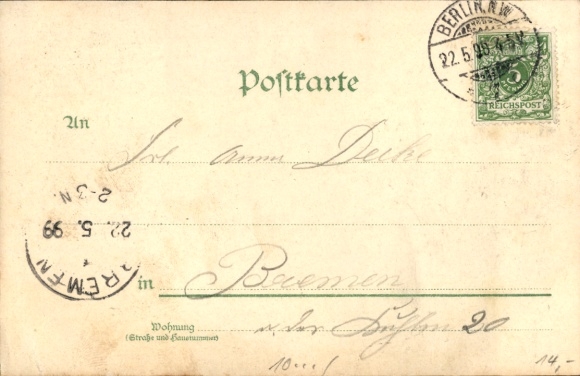 BERLIN. N.W.
22.5.99. 4-5 V.
5
REICHSPOST
Postkarte
An
Frl. Anna Deike
2-3 N.
22. 5. 99
BREMEN
1
in
Bremen
Wohnung
(Straße und Hausnummer)
a. der Kuhlen 20
14,-